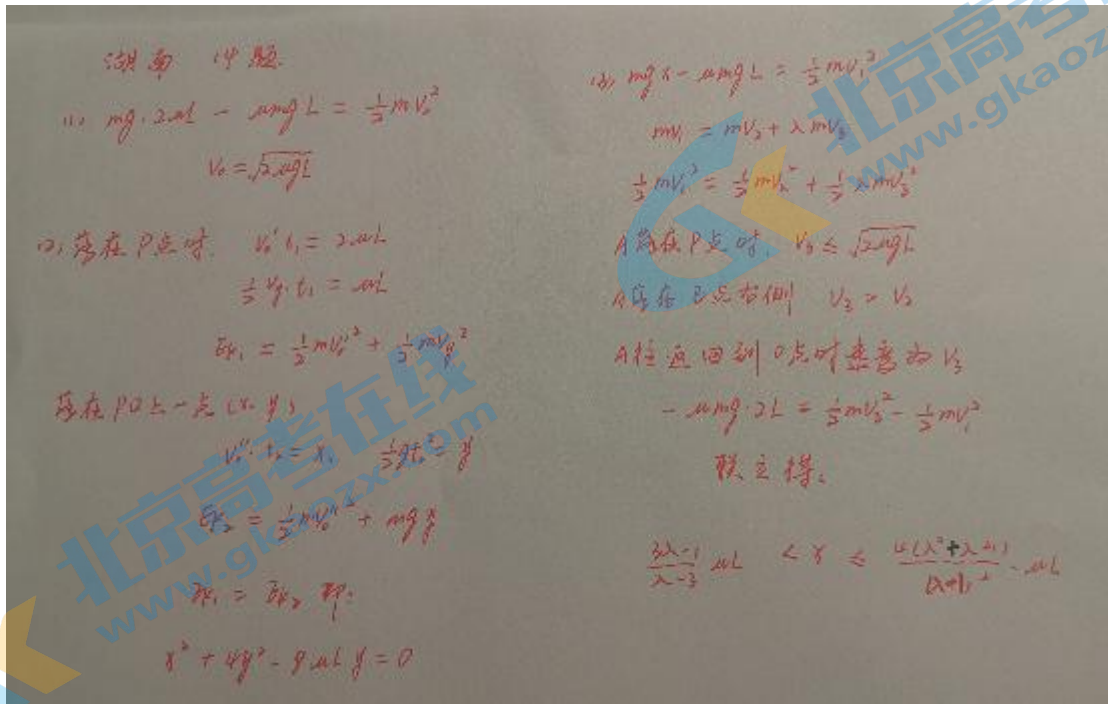 湖南 14题.
(1) mg·2μL - μmgL = ½mv₀²
v₀ = √2μgL
(2) 落在P点时. v₀' t₁ = 2μL
½ vy·t₁ = μL
Ek₁ = ½mv₀'² + ½mvy²
落在PQ上一点 (x, y)
v₀''·t₂ = x, ½gt₂² = y
Ek₂ = ½mv₀''² + mgy
Ek₁ = Ek₂ 即:
x² + 4y² - 8μLy = 0
(3) mgx - μmgL = ½mv₁²
mv₁ = mv₂ + λmv₃
½mv₁² = ½mv₂² + ½λmv₃²
A落在P点时, v₃ ≤ √2μgL
A落在B点右侧 v₃ > v₂
A往返回到O点时速度为v₃
-μmg·2L = ½mv₃² - ½mv₂²
联立得.
(3λ-1)/(λ-3) μL < x ≤ ·μL
北京高考在线
www.gkaozx.com
北京高考
www.gkaoz